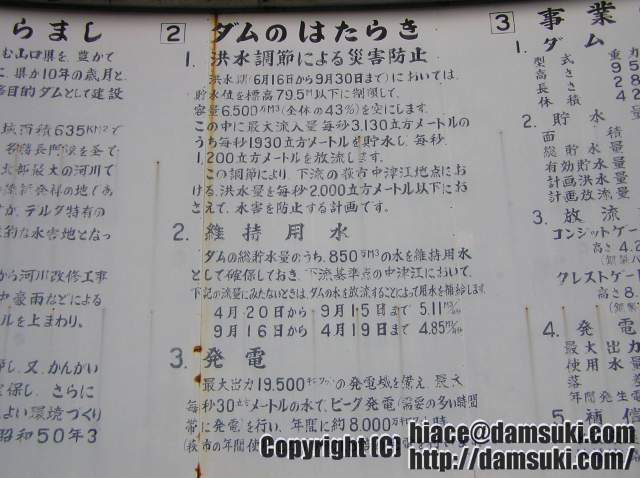 らまし
む山口県を、豊かで
に、県が10年の歳月と、
多目的ダムとして建設
域面積635KM2で
北部最大の河川で
デルタ特有の
な水害地となっ
から河川改修工事
豪雨などによる
ルを上まわり。
し、又、かんがい
保し、さらに
よい環境づくり
昭和50年3
2 ダムのはたらき
1. 洪水調節による災害防止
洪水期(6月16日から9月30日まで)においては、
貯水位を標高79.5M以下に制限して、
容量6,500万M3(全体の43%)を空にします。
この中に最大流入量毎秒3,130立方メートルの
うち毎秒1930立方メートルを貯水し、毎秒、
1,200立方メートルを放流します。
この調節により、下流の萩市中津江地点にお
ける、洪水量を毎秒2,000立方メートル以下にお
さえて、水害を防止する計画です。
2. 維持用水
ダムの総貯水量のうち、850万M3の水を維持用水
として確保しておき、下流基準点の中津江において、
下記の流量にみたないときは、ダムの水を放流することによって用水を補給します
4月20日から 9月15日まで 5.11M3/秒
9月16日から 4月19日まで 4.85M3/秒
3. 発電
最大出力19,500キロワットの発電機を備え、最大
毎秒30立方メートルの水で、ピーク発電(需要の多い時間
帯に発電)を行い、年間に約8,000万キロワット時
(萩市の年間使
3 事業
1. ダム
型式 重力
高さ 95
長さ 2
体積 42
2. 貯水
面積
総貯水量
有効貯水量
計画洪水量
計画放流量
3. 放流
コンジットゲー
高さ4.2
クレストゲー
高さ8.
4. 発電
最大出力
使用水量
落
年間発生電
5. 補償
Copyright (C) hiace@damsuki.com
http://damsuki.com/